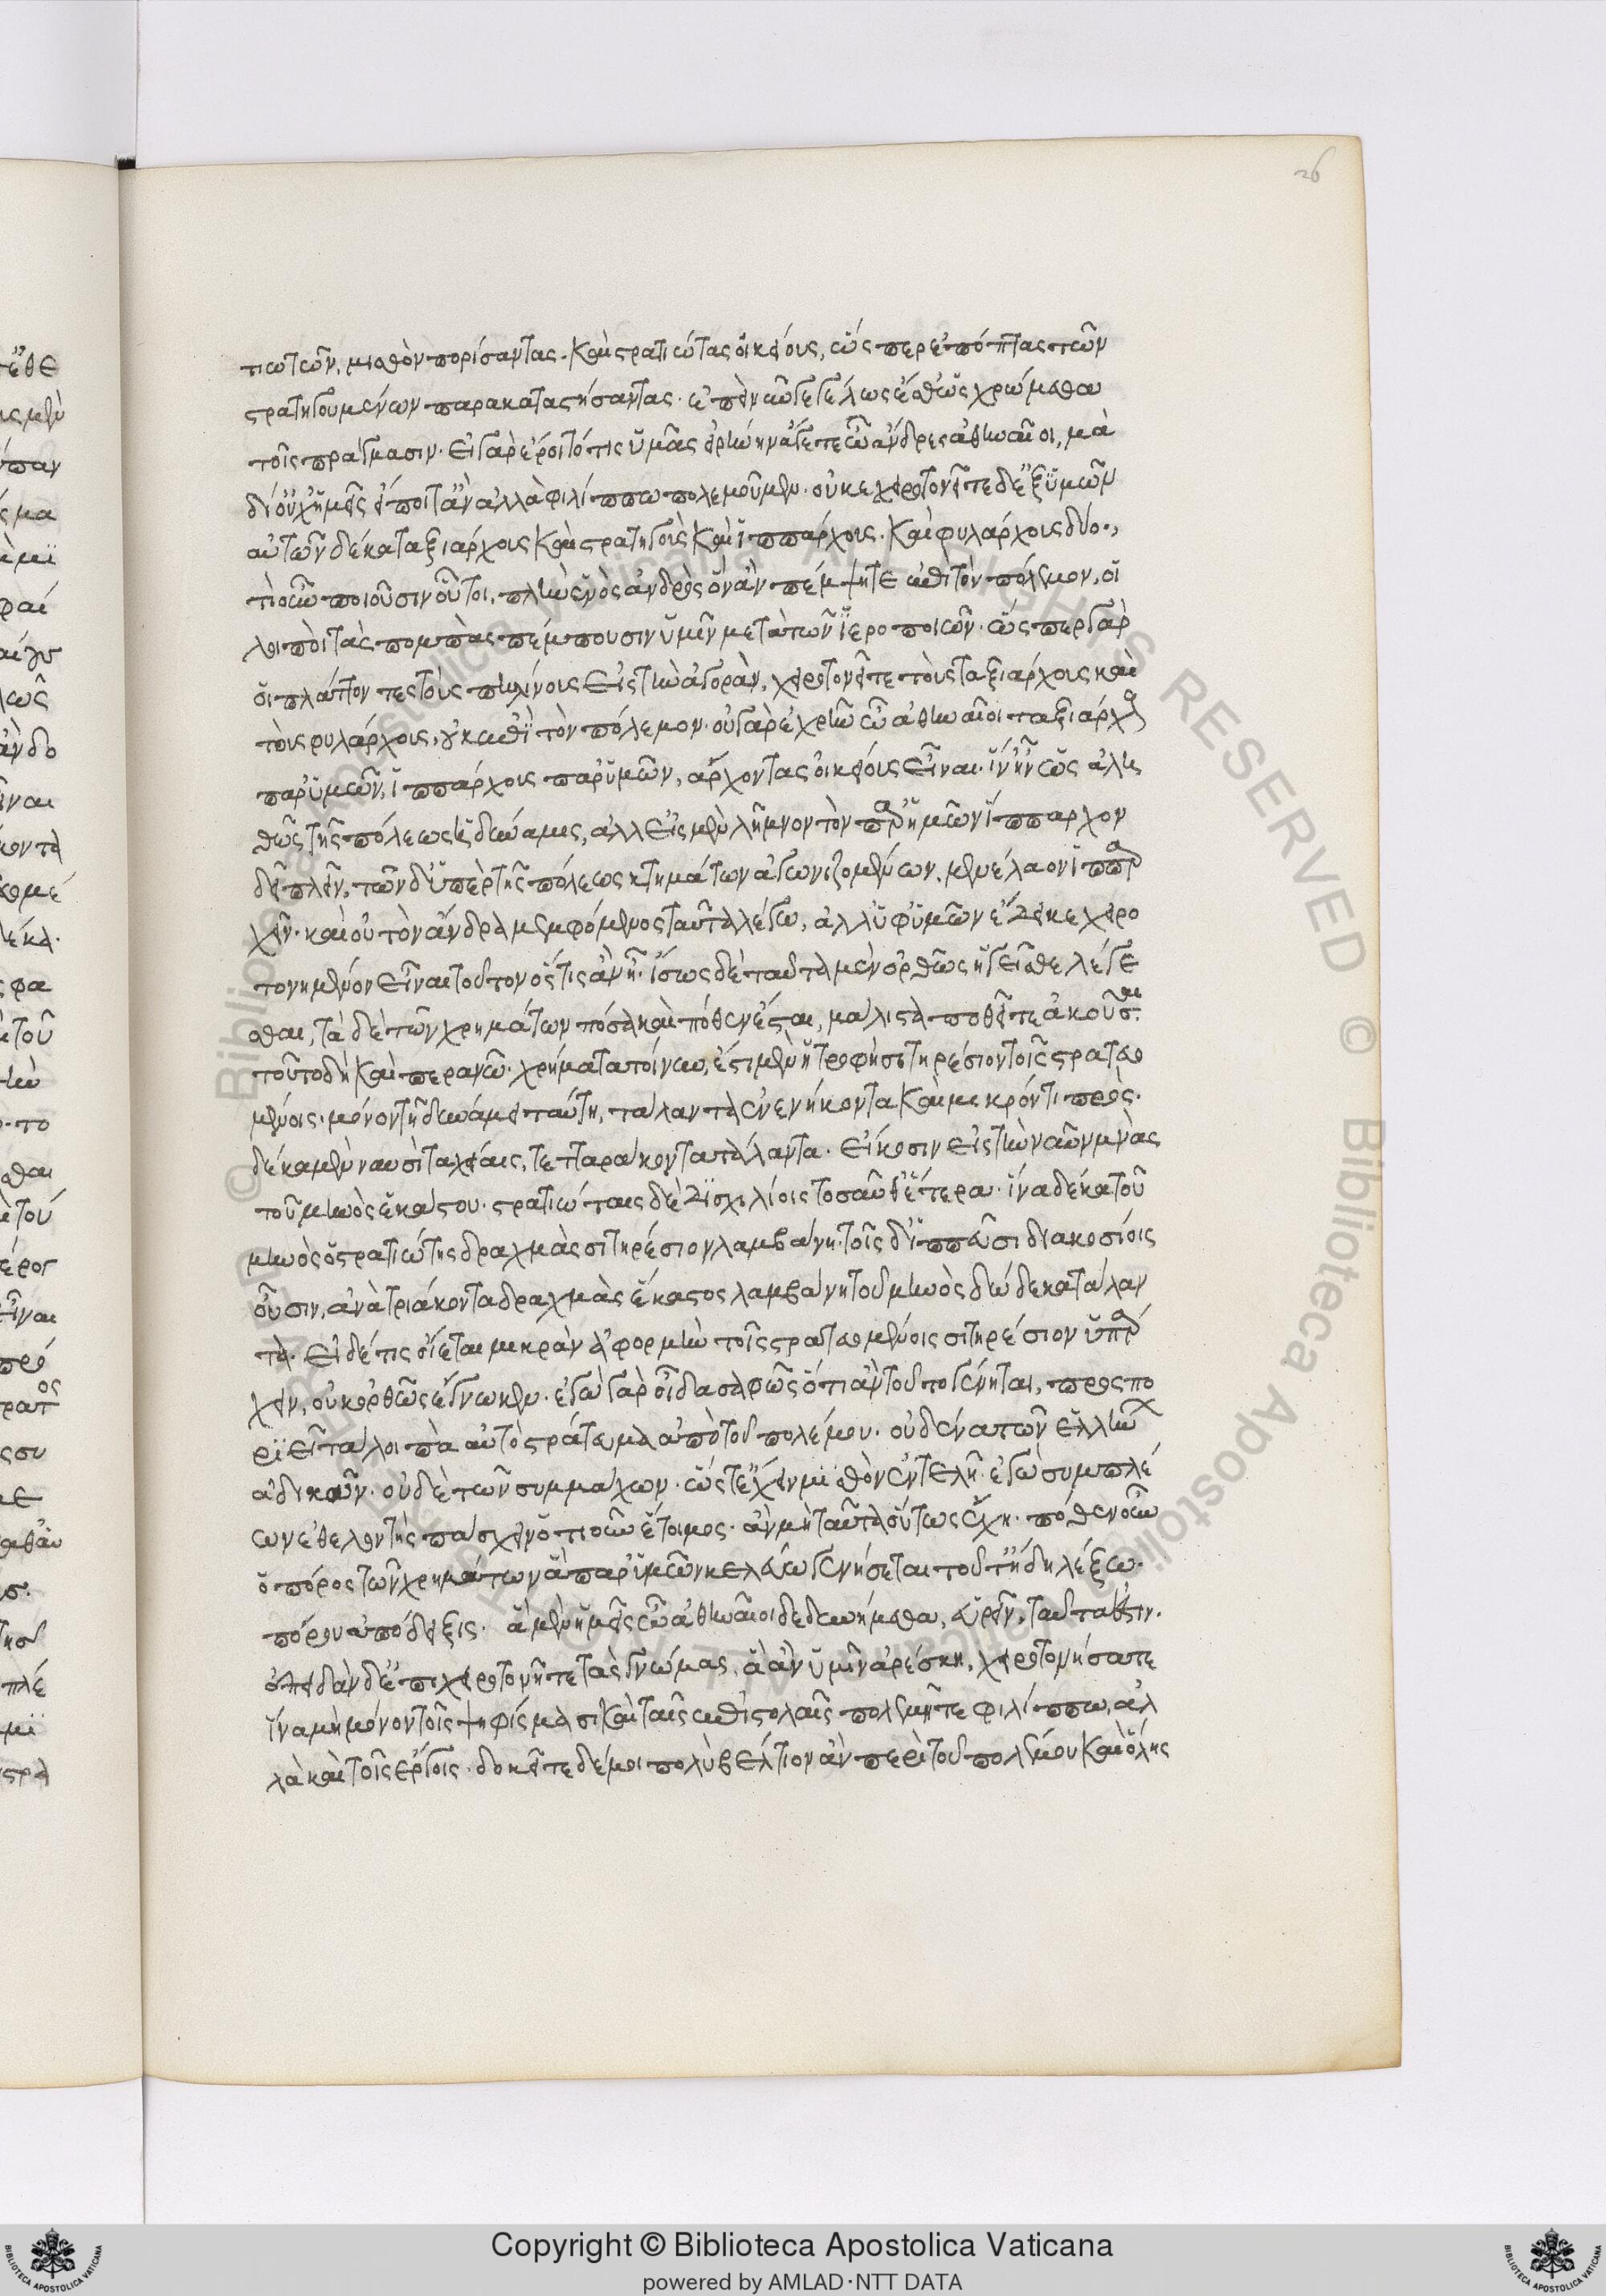 26
τιωτῶν, μισθὸν πορίσαντας. καὶ στρατιώτας οἰκείους, ὥσπερ ἐπόπτας τῶν
στρατηγουμένων παρακαταστήσαντας. ἐπεὶ νῦν γε γέλως ἔσθ' ὡς χρώμεθα
τοῖς πράγμασιν. εἰ γὰρ ἔροιτό τις ὑμᾶς εἰρήνην ἄγετε ὦ ἄνδρες ἀθηναῖοι, μὰ
δί' οὐχ ἡμεῖς εἴποιτ' ἂν ἀλλὰ φιλίππω πολεμοῦμεν. οὐκ ἐχειροτονεῖτε δ' ἐξ ὑμῶν
αὐτῶν δέκα ταξιάρχους καὶ στρατηγοὺς καὶ ἱππάρχους. καὶ φυλάρχους δύο.,
τί οὖν ποιοῦσιν οὗτοι, πλὴν ἑνὸς ἀνδρὸς ὃν ἂν πέμψητε ἐπὶ τὸν πόλεμον, οἱ
λοιποὶ τὰς πομπὰς πέμπουσιν ὑμῖν μετὰ τῶν ἱεροποιῶν. ὥσπερ γὰρ
οἱ πλάττοντες τοὺς πηλίνους εἰς τὴν ἀγορὰν, χειροτονεῖτε τοὺς ταξιάρχους καὶ
τοὺς φυλάρχους, οὐκ ἐπὶ τὸν πόλεμον. οὐ γὰρ ἐχρῆν ὦ ἀθηναῖοι ταξιάρχους
παρ' ὑμῶν, ἱππάρχους παρ' ὑμῶν, ἄρχοντας οἰκείους εἶναι. ἵν' ἦν ὡς ἀλη
θῶς τῆς πόλεως ἡ δύναμις, ἀλλ' εἰς μὲν λῆμνον τὸν παρ' ἡμῶν ἵππαρχον
δεῖ πλεῖν, τῶν δ' ὑπὲρ τῆς πόλεως κτημάτων ἀγωνιζομένων, μενέλαον ἱππαρ
χεῖν. καὶ οὐ τὸν ἄνδρα μεμφόμενος ταῦτα λέγω, ἀλλ' ὑφ' ὑμῶν ἔδει κεχειρο
τονημένον εἶναι τοῦτον ὅστις ἂν ᾖ. ἴσως δὲ ταῦτα μὲν ὀρθῶς ἡγεῖσθε λέγε
σθαι, τὰ δὲ τῶν χρημάτων πόσα καὶ πόθεν ἔσται, μάλιστα ποθεῖτε ἀκοῦσαι.
τοῦτο δὴ καὶ περανῶ. χρήματα τοίνυν, ἔστι μὲν ἡ τροφὴ σιτηρέσιον τοῖς στρατευο
μένοις. μόνον τῇ δυνάμει ταύτη, τάλαντα ἐνενήκοντα καὶ μικρόν τι πρὸς.
δέκα μὲν ναυσὶ ταχείαις, τετταράκοντα τάλαντα. εἴκοσιν εἰς τὴν ναῦν μνᾶς
τοῦ μηνὸς ἑκάστου. στρατιώταις δὲ δισχιλίοις τοσαῦθ' ἕτερα. ἵνα δέκα τοῦ
μηνὸς ὁ στρατιώτης δραχμὰς σιτηρέσιον λαμβάνη. τοῖς δ' ἱππεῦσι διακοσίοις
οὖσιν, ἀνὰ τριάκοντα δραχμὰς ἕκαστος λαμβάνη τοῦ μηνὸς δώδεκα τάλαν
τα. εἰ δέ τις οἴεται μικρὰν ἀφορμὴν τοῖς στρατευομένοις σιτηρέσιον ὑπάρ
χειν, οὐκ ὀρθῶς ἔγνωκεν. ἐγὼ γὰρ οἶδα σαφῶς ὅτι ἂν τοῦτο γένηται, προσπο
ριεῖ τὰ λοιπὰ αὐτὸ στράτευμα ἀπὸ τοῦ πολέμου. οὐδένα τῶν ἑλλήνων
ἀδικοῦν. οὐδὲ τῶν συμμάχων. ὥστ' ἔχειν μισθὸν ἐντελῆ. ἐγὼ συμπλέ
ων ἐθελοντὴς πάσχειν ὁτιοῦν ἕτοιμος. ἂν μὴ ταῦτα οὕτως ἔχη. πόθεν οὖν
ὁ πόρος τῶν χρημάτων ἃ παρ' ὑμῶν κελεύω γενήσεται τοῦτ' ἤδη λέξω.
πόρου ἀπόδειξις. ἃ μὲν ἡμεῖς ὦ ἀθηναῖοι δεδυνήμεθα, εὑρεῖν, ταῦτά ἐστιν.
ἐπειδὰν δ' ἐπιχειροτονῆτε τὰς γνώμας, ἃ ἂν ὑμῖν ἀρέσκη, χειροτονήσατε
ἵνα μὴ μόνον τοῖς ψηφίσμασι καὶ ταῖς ἐπιστολαῖς πολεμῆτε φιλίππω, ἀλ
λὰ καὶ τοῖς ἔργοις. δοκεῖτε δέ μοι πολὺ βέλτιον ἂν περὶ τοῦ πολέμου καὶ ὅλης
Copyright © Biblioteca Apostolica Vaticana
powered by AMLAD·NTT DATA